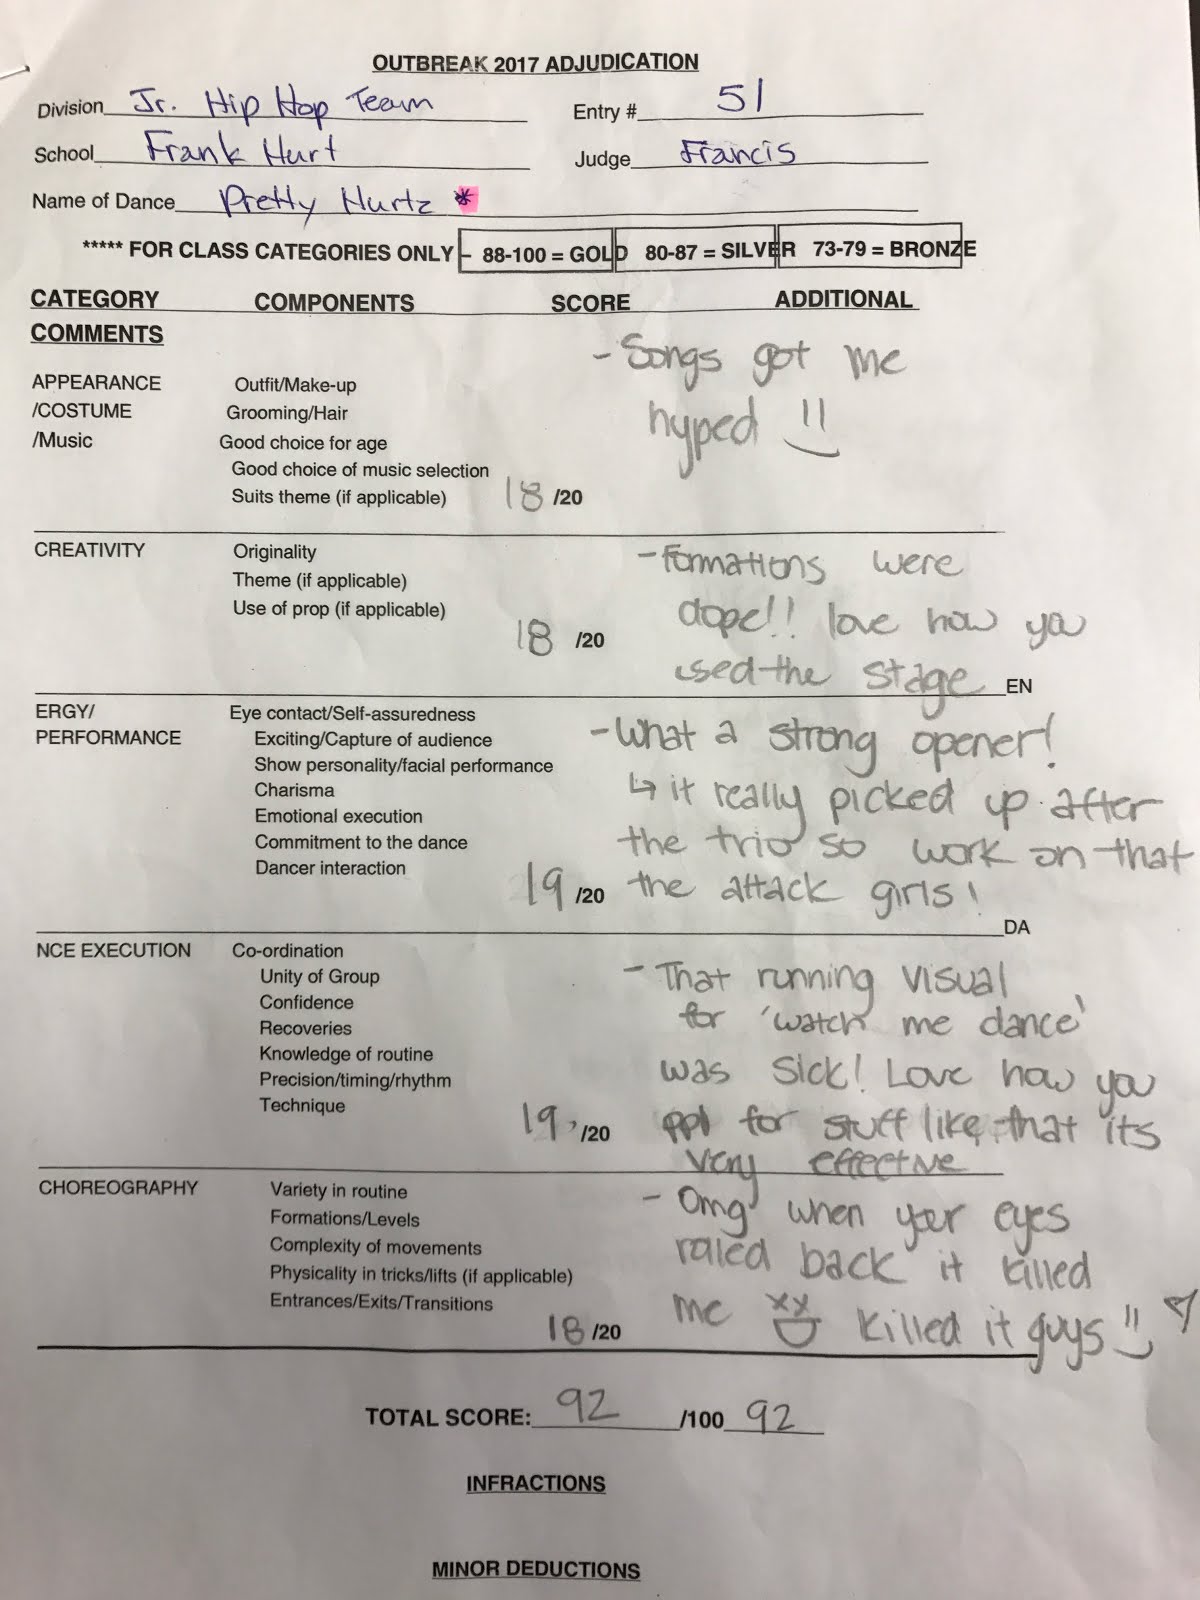 OUTBREAK 2017 ADJUDICATION
Division Jr. Hip Hop Team Entry # 51
School Frank Hurt Judge Francis
Name of Dance Pretty Hurtz *
***** FOR CLASS CATEGORIES ONLY - 88-100 = GOLD 80-87 = SILVER 73-79 = BRONZE
CATEGORY COMPONENTS SCORE ADDITIONAL
COMMENTS
- Songs got me
hyped
APPEARANCE Outfit/Make-up
/COSTUME Grooming/Hair
/Music Good choice for age
Good choice of music selection
Suits theme (if applicable) 18 /20
CREATIVITY Originality - Formations were
Theme (if applicable)
Use of prop (if applicable) dope!! love how you
18 /20
used the stage EN
ERGY/ Eye contact/Self-assuredness
PERFORMANCE Exciting/Capture of audience - What a strong opener!
Show personality/facial performance
Charisma ↳ it really picked up after
Emotional execution
Commitment to the dance the trio so work on that
Dancer interaction 19 /20 the attack girls!
DA
NCE EXECUTION Co-ordination
Unity of Group - That running visual
Confidence
Recoveries for 'watch me dance'
Knowledge of routine
Precision/timing/rhythm was sick! Love how you
Technique 19 /20 ppl for stuff like that its
very effective
CHOREOGRAPHY Variety in routine - Omg when your eyes
Formations/Levels
Complexity of movements roled back it killed
Physicality in tricks/lifts (if applicable)
Entrances/Exits/Transitions me xx killed it guys
18 /20
TOTAL SCORE: 92 /100 92
INFRACTIONS
MINOR DEDUCTIONS